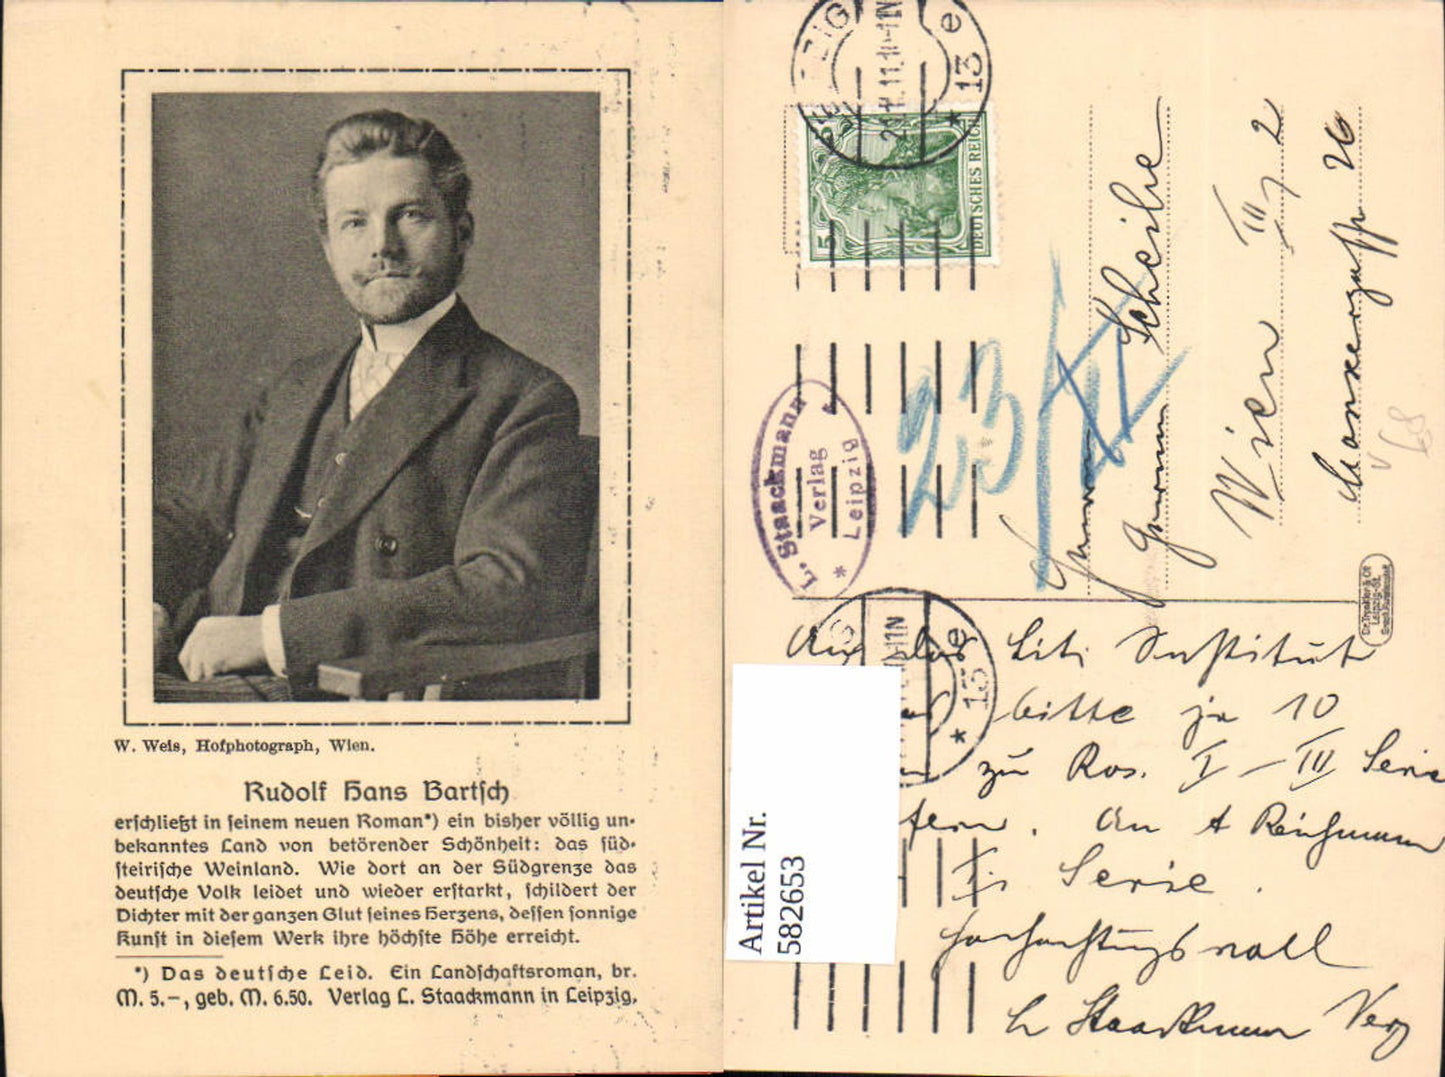 W. Weis, Hofphotograph, Wien.
Rudolf Hans Bartſch
erſchließt in ſeinem neuen Roman*) ein bisher völlig un-
bekanntes Land von betörender Schönheit: das ſüd-
ſteiriſche Weinland. Wie dort an der Südgrenze das
deutſche Volk leidet und wieder erſtarkt, ſchildert der
Dichter mit der ganzen Glut ſeines Herzens, deſſen ſonnige
Kunſt in dieſem Werk ihre höchſte Höhe erreicht.
*) Das deutſche Leid. Ein Landſchaftsroman, br.
M. 5.–, geb. M. 6.50. Verlag L. Staackmann in Leipzig.
13 e
5
DEUTSCHES REICH
L. Staackmann
Verlag
* Leipzig
23
Herrn
Hermann Scheibe
Wien III, 2
26
68
An das Liti Institut
bitte je 10
zu Ros. I – III Serie
fern. An A Reichmann
I. Serie.
hochachtungsvoll
L Staackmann Verg
* 13 e
Artikel Nr.
582653